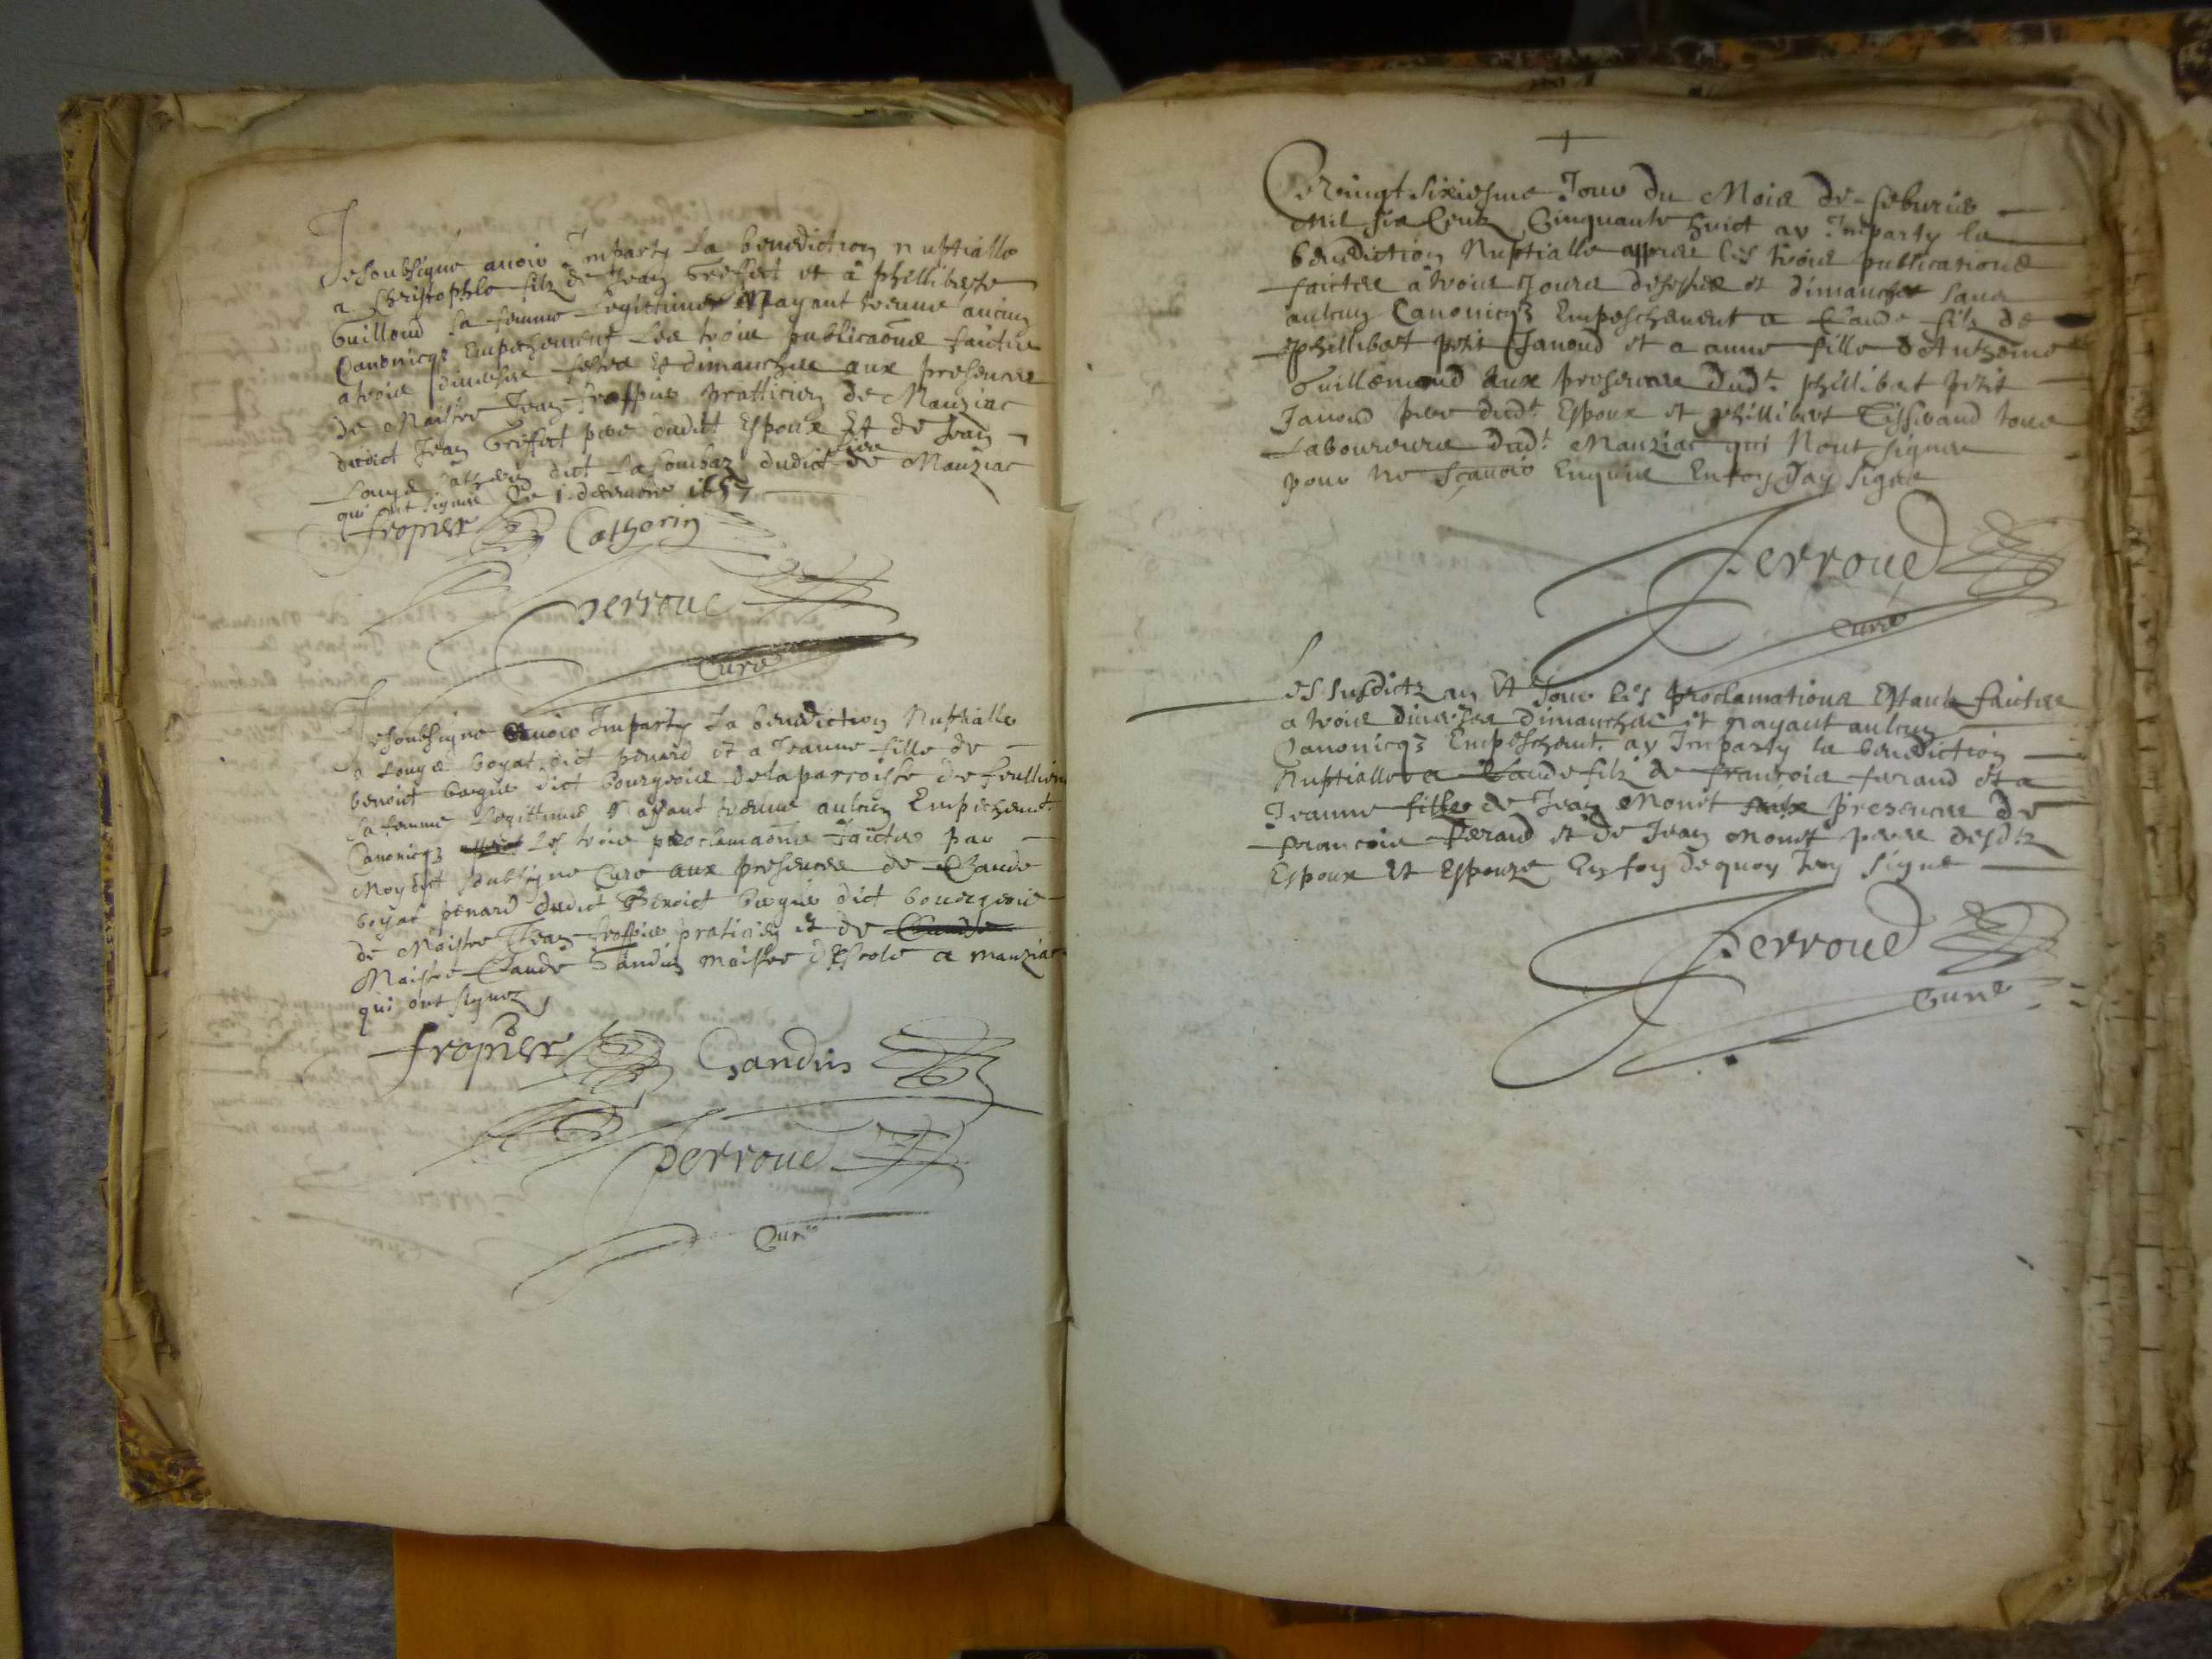 Je soubsigné avoir Imparty la benediction nuptialle
a Christophle filz de Jean Greffet et a philliberte
Guilloud sa femme Legittime Nayant treuué aucun
Canonicqz Empechement Les trois publicaons faictes
a trois diuerses festes Et dimanches aux presences
de Maistre Jean froppier pratticien de Manziac
dudict Jean Greffet pere dudict Espoux Et de Jean
Louys Catherin dict dudict Manziac
qui ont signes Ce decembre 1657
fropier Catherin
perroud
Curé
Je soubsigne Avoir Imparty La benediction Nuptialle
a Louys boyat dict penard et a Jeanne fille de
benoict dict bourgeois de la parroisse de feullien
sa femme Legittime N ayant treuue aulcun Empechement
Canonicqz Les trois proclamaons faictes par
Moy dict soubsigne Cure aux presences de Claude
boyat penard dudict Benoict dict bourgeois
de Maistre Jean froppier praticien et de
Maistre Claude Gandin maistre descole a manziac
qui ont signez
fropier Gandin
perroud
Curé
Ce vingt sixiesme Jour du Mois de feburier
Mil six Centz Cinquante huict ay Imparty la
benediction Nuptialle appres les trois publications
faictes a trois Jours de festes et dimanches sans
aulcun Canonicqz Empeschement a Claude filz de
phillibert petit Janoud et a anne fille d'Anthoine
Guillemaud Aux presences dudt phillibert petit
Janoud pere dudt Espoux et phillibert Tisserand tous
Laboureurs dudt Manziac qui Nont signes
pour ne Scauoir Enquis En foy Jay Signe
Perroud
Curé
Les susdictz an Et Jour les proclamations Estants faictes
a trois diuerses dimanches et nayant aulcun
Canonicqz Empeschemt. ay Imparty la benediction
Nuptialle a Claude filz de francois feraud et a
Jeanne fille de Jean Monet aulx presences de
francois feraud et de Jean Monet peres desdtz
Espoux Et Espouze En foy de quoy Jay Signe
Perroud
Curé